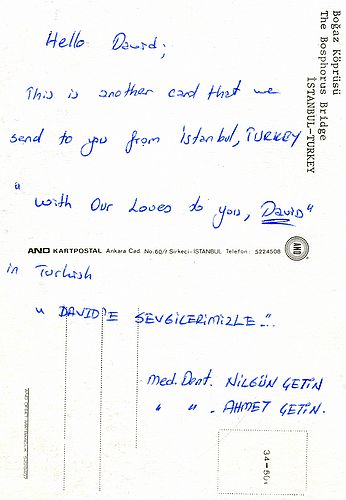 Boğaz Köprüsü
The Bosphorus Bridge
İSTANBUL-TURKEY
Hello David;
This is another card that we
send to you from istanbul, TURKEY
" with Our Loves to you, David"
AND KARTPOSTAL Ankara Cad. No:60/7 Sirkeci-İSTANBUL Telefon: 5224508 AND
in Turkish
" DAVID'E SEVGİLERİMİZLE..".
med. Dent. NİLGÜN ÇETİN
" " . AHMET ÇETİN.
34-50